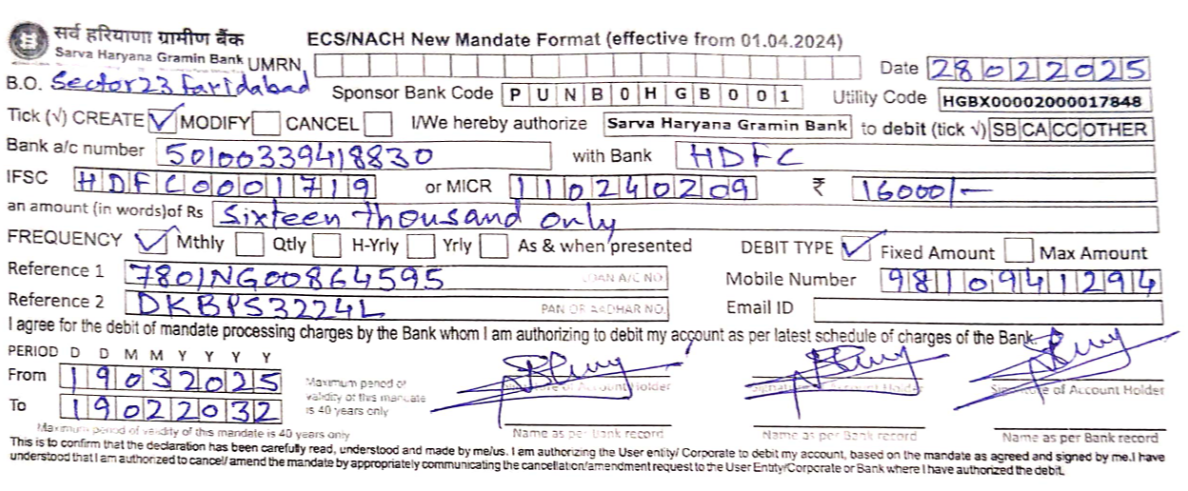 सर्व हरियाणा ग्रामीण बैंक
Sarva Haryana Gramin Bank
ECS/NACH New Mandate Format (effective from 01.04.2024)
UMRN
Date 28022025
B.O. Sector 23 Faridabad
Sponsor Bank Code PUNB0HGB001 Utility Code HGBX00002000017848
Tick (√) CREATE ✓ MODIFY CANCEL I/We hereby authorize Sarva Haryana Gramin Bank to debit (tick √) SB CA CC OTHER
Bank a/c number 50100339418830 with Bank HDFC
IFSC HDFC0001719 or MICR 110240209 ₹ 16000/-
an amount (in words)of Rs Sixteen thousand only
FREQUENCY ✓ Mthly Qtly H-Yrly Yrly As & when presented DEBIT TYPE ✓ Fixed Amount Max Amount
Reference 1 7801NG00864595 LOAN A/C NO. Mobile Number 9811094129​4
Reference 2 DKBPS3224L PAN OR AADHAR NO. Email ID
I agree for the debit of mandate processing charges by the Bank whom I am authorizing to debit my account as per latest schedule of charges of the Bank.
PERIOD D D M M Y Y Y Y
From 19032025
To 19022032
Maximum period of
validity of this mandate
is 40 years only
Signature of Account Holder Signature of Account Holder Signature of Account Holder
Maximum period of validity of this mandate is 40 years only
Name as per Bank record Name as per Bank record Name as per Bank record
This is to confirm that the declaration has been carefully read, understood and made by me/us. I am authorizing the User entity/ Corporate to debit my account, based on the mandate as agreed and signed by me. I have
understood that I am authorized to cancel/amend the mandate by appropriately communicating the cancellation/amendment request to the User Entity/Corporate or Bank where I have authorized the debit.